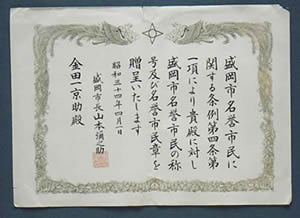 盛岡市名誉市民に
関する条例第四条第
一項により貴殿に対し
盛岡市名誉市民の称
号及び名誉市民章を
贈呈いたします
昭和三十四年四月一日
盛岡市長山本彌之助
金田一京助殿